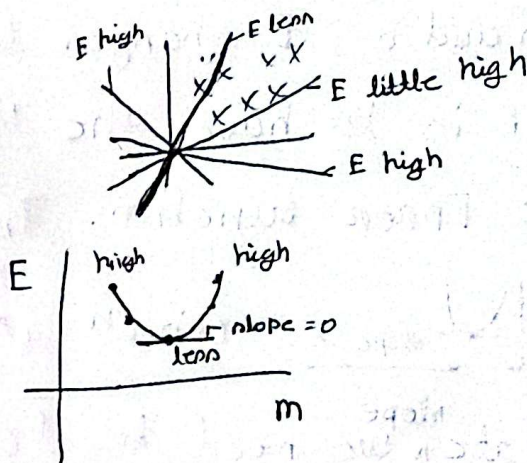 E high
E less
x x x x
x x x
E little high
E high
E
high
high
slope = 0
less
m